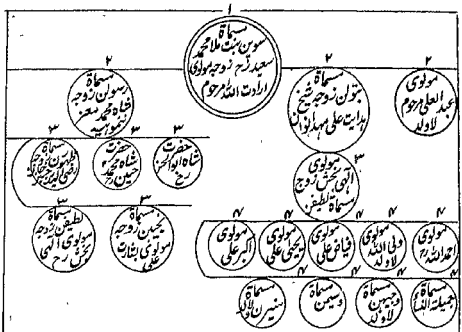 ۱
مسماة
سوبن بنت ملا محمد
سعید رح زوجہ مولوی
ارادت اللہ مرحوم
۲
مولوی
عبد العلی مرحوم
لاولد
۲
مسماة
بتولن زوجہ شیخ
ہدایت علی
۲
مسماة
رسولن زوجہ
شاہ محمد معز
۳
حضرت
شاہ ابوالحسن
رح
۳
حضرت
شاہ محمد
حسین رح
۳
مسماة
۳
مولوی
الہی بخش زوج
مسماة لطیفن
۳
مسماة
زوجہ
مولوی بشارت
علی
۳
مسماة
لطیفن زوجہ
مولوی الہی
بخش رح
۴
مولوی
احمد اللہ رح
۴
مولوی
ولی اللہ
لاولد
۴
مولوی
فیاض علی
۴
مولوی
یحیی علی
۴
مولوی
اکبر علی
۴
مسماة
جمیلة النسا
۴
مسماة
وجیہن
لاولد
۴
مسماة
وسیمن
۴
مسماة
لاولد